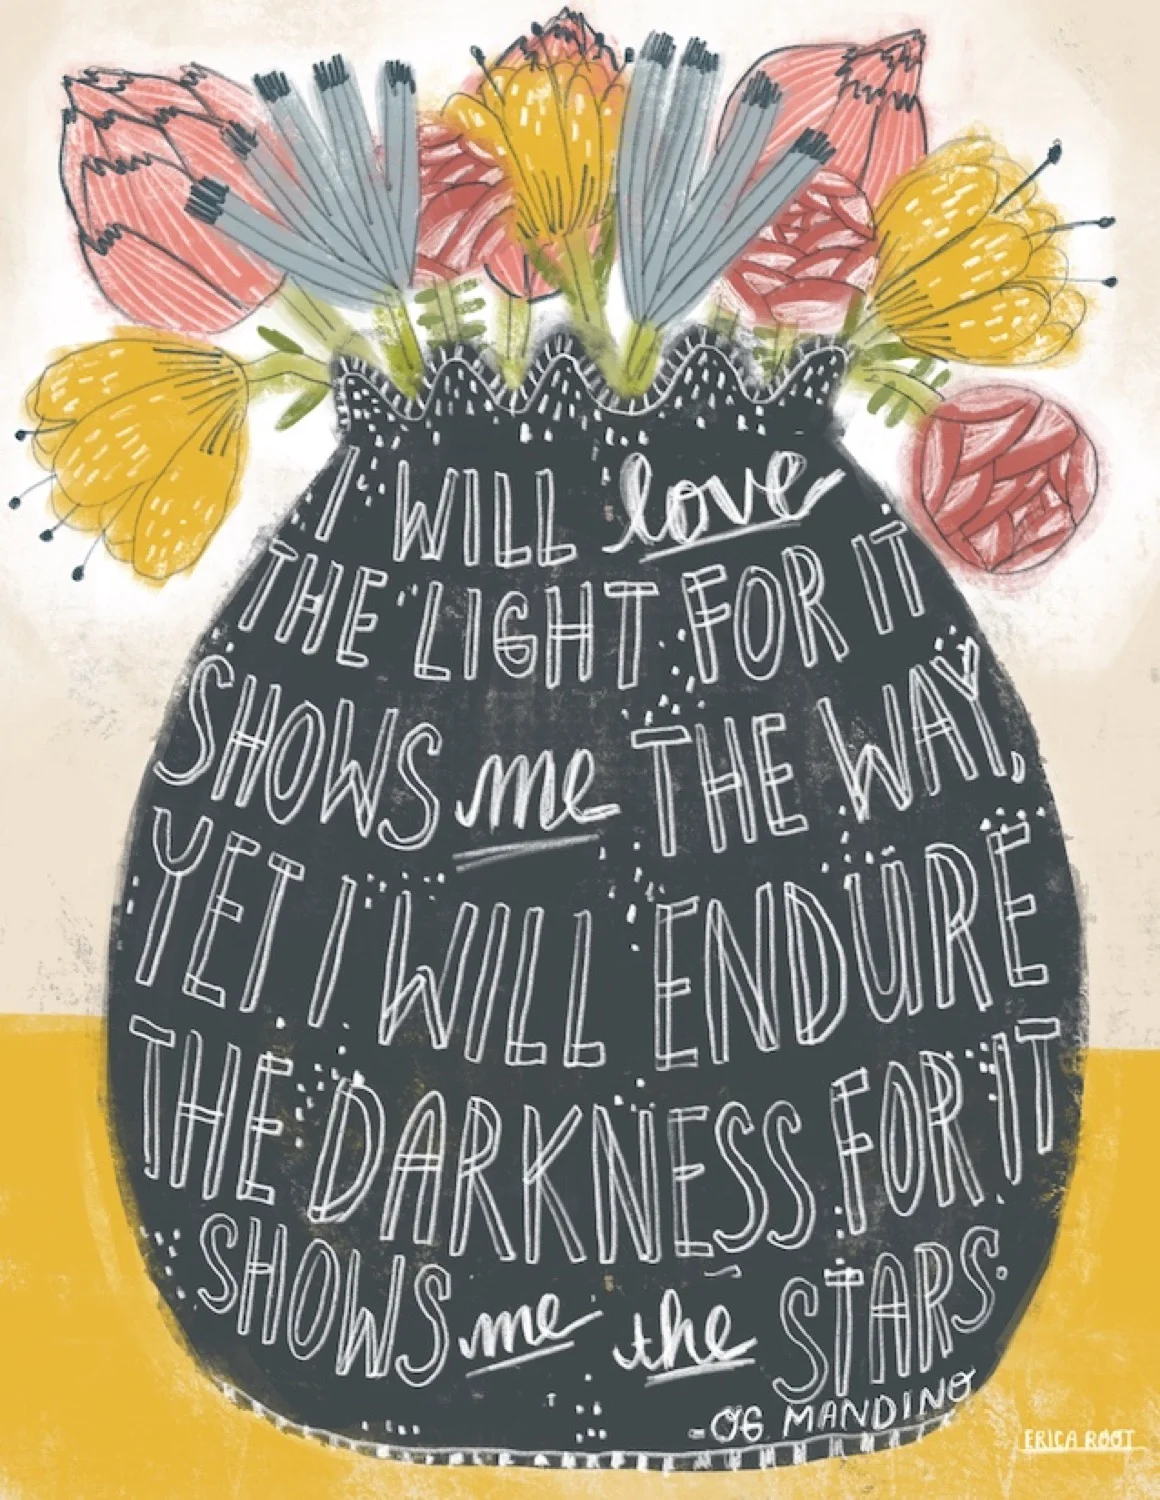 I WILL love
THE LIGHT FOR IT
SHOWS me THE WAY,
YET I WILL ENDURE
THE DARKNESS FOR IT
SHOWS me the STARS.
OG MANDINO
ERICA ROOT